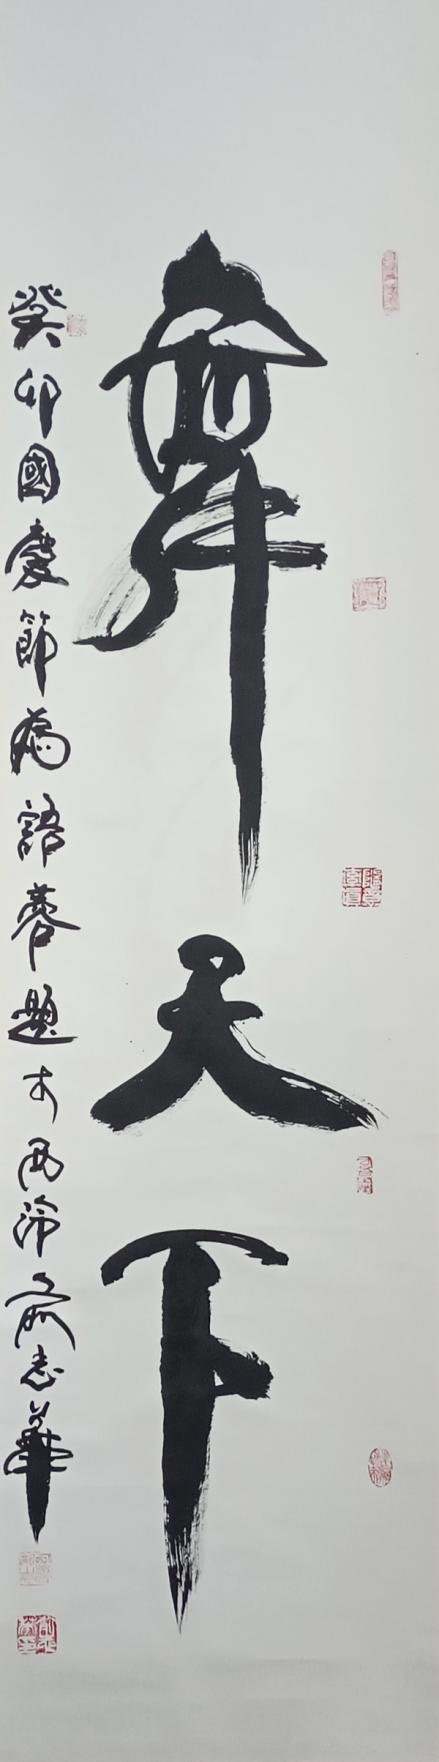 舞天下
癸卯國慶節為語蓉題于西泠俞志華